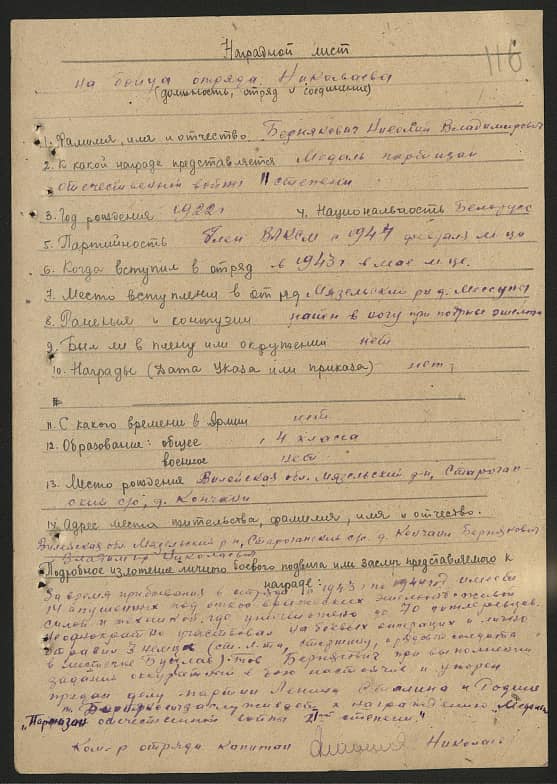 Наградной лист
116
на бойца отряда Николаева
(должность, отряд и соединение)
1. Фамилия, имя и отчество Беднякович Николай Владимирович
2. К какой награде представляется Медаль партизан
отечественной войны II степени
3. Год рождения 1922 г 4. Национальность Белорус
5. Партийность Член ВЛКСМ с 1944 февраля м-ца
6. Когда вступил в отряд в 1943 г в мае м-це.
7. Место вступления в отряд Мязельский р-н д.
8. Ранения и контузии ранен в ногу при
9. Был ли в плену или окружении нет
10. Награды (Дата Указа или приказа) нет
11. С какого времени в Армии нет
12. Образование: общее 4 класса
военное нет
13. Место рождения Вилейская обл. Мязельский р-н,
ский с/с, д. Кончани
14. Адрес места жительства, фамилия, имя и отчество.
Вилейская обл. Мязельский р-н, с/с. д. Кончани Беднякович
Владимир Николаевич
Подробное изложение личного боевого подвига или заслуг представляемого к
награде:
За время пребывания в отряде с 1943 г по 1944 год имеет
14 спущенных под откос вражеских эшелонов с живой
силой и техникой, где уничтожено до 70
Неоднократно участвовал на боевых операциях и лично
3 немца
в местечке Тов Беднякович при выполнении
задания и упорен
предан делу партии Ленина Сталина и Родине
т. к награждению Медали
"Партизан отечественной войны II-ой степени."
Ком-р отряда капитан Николаев